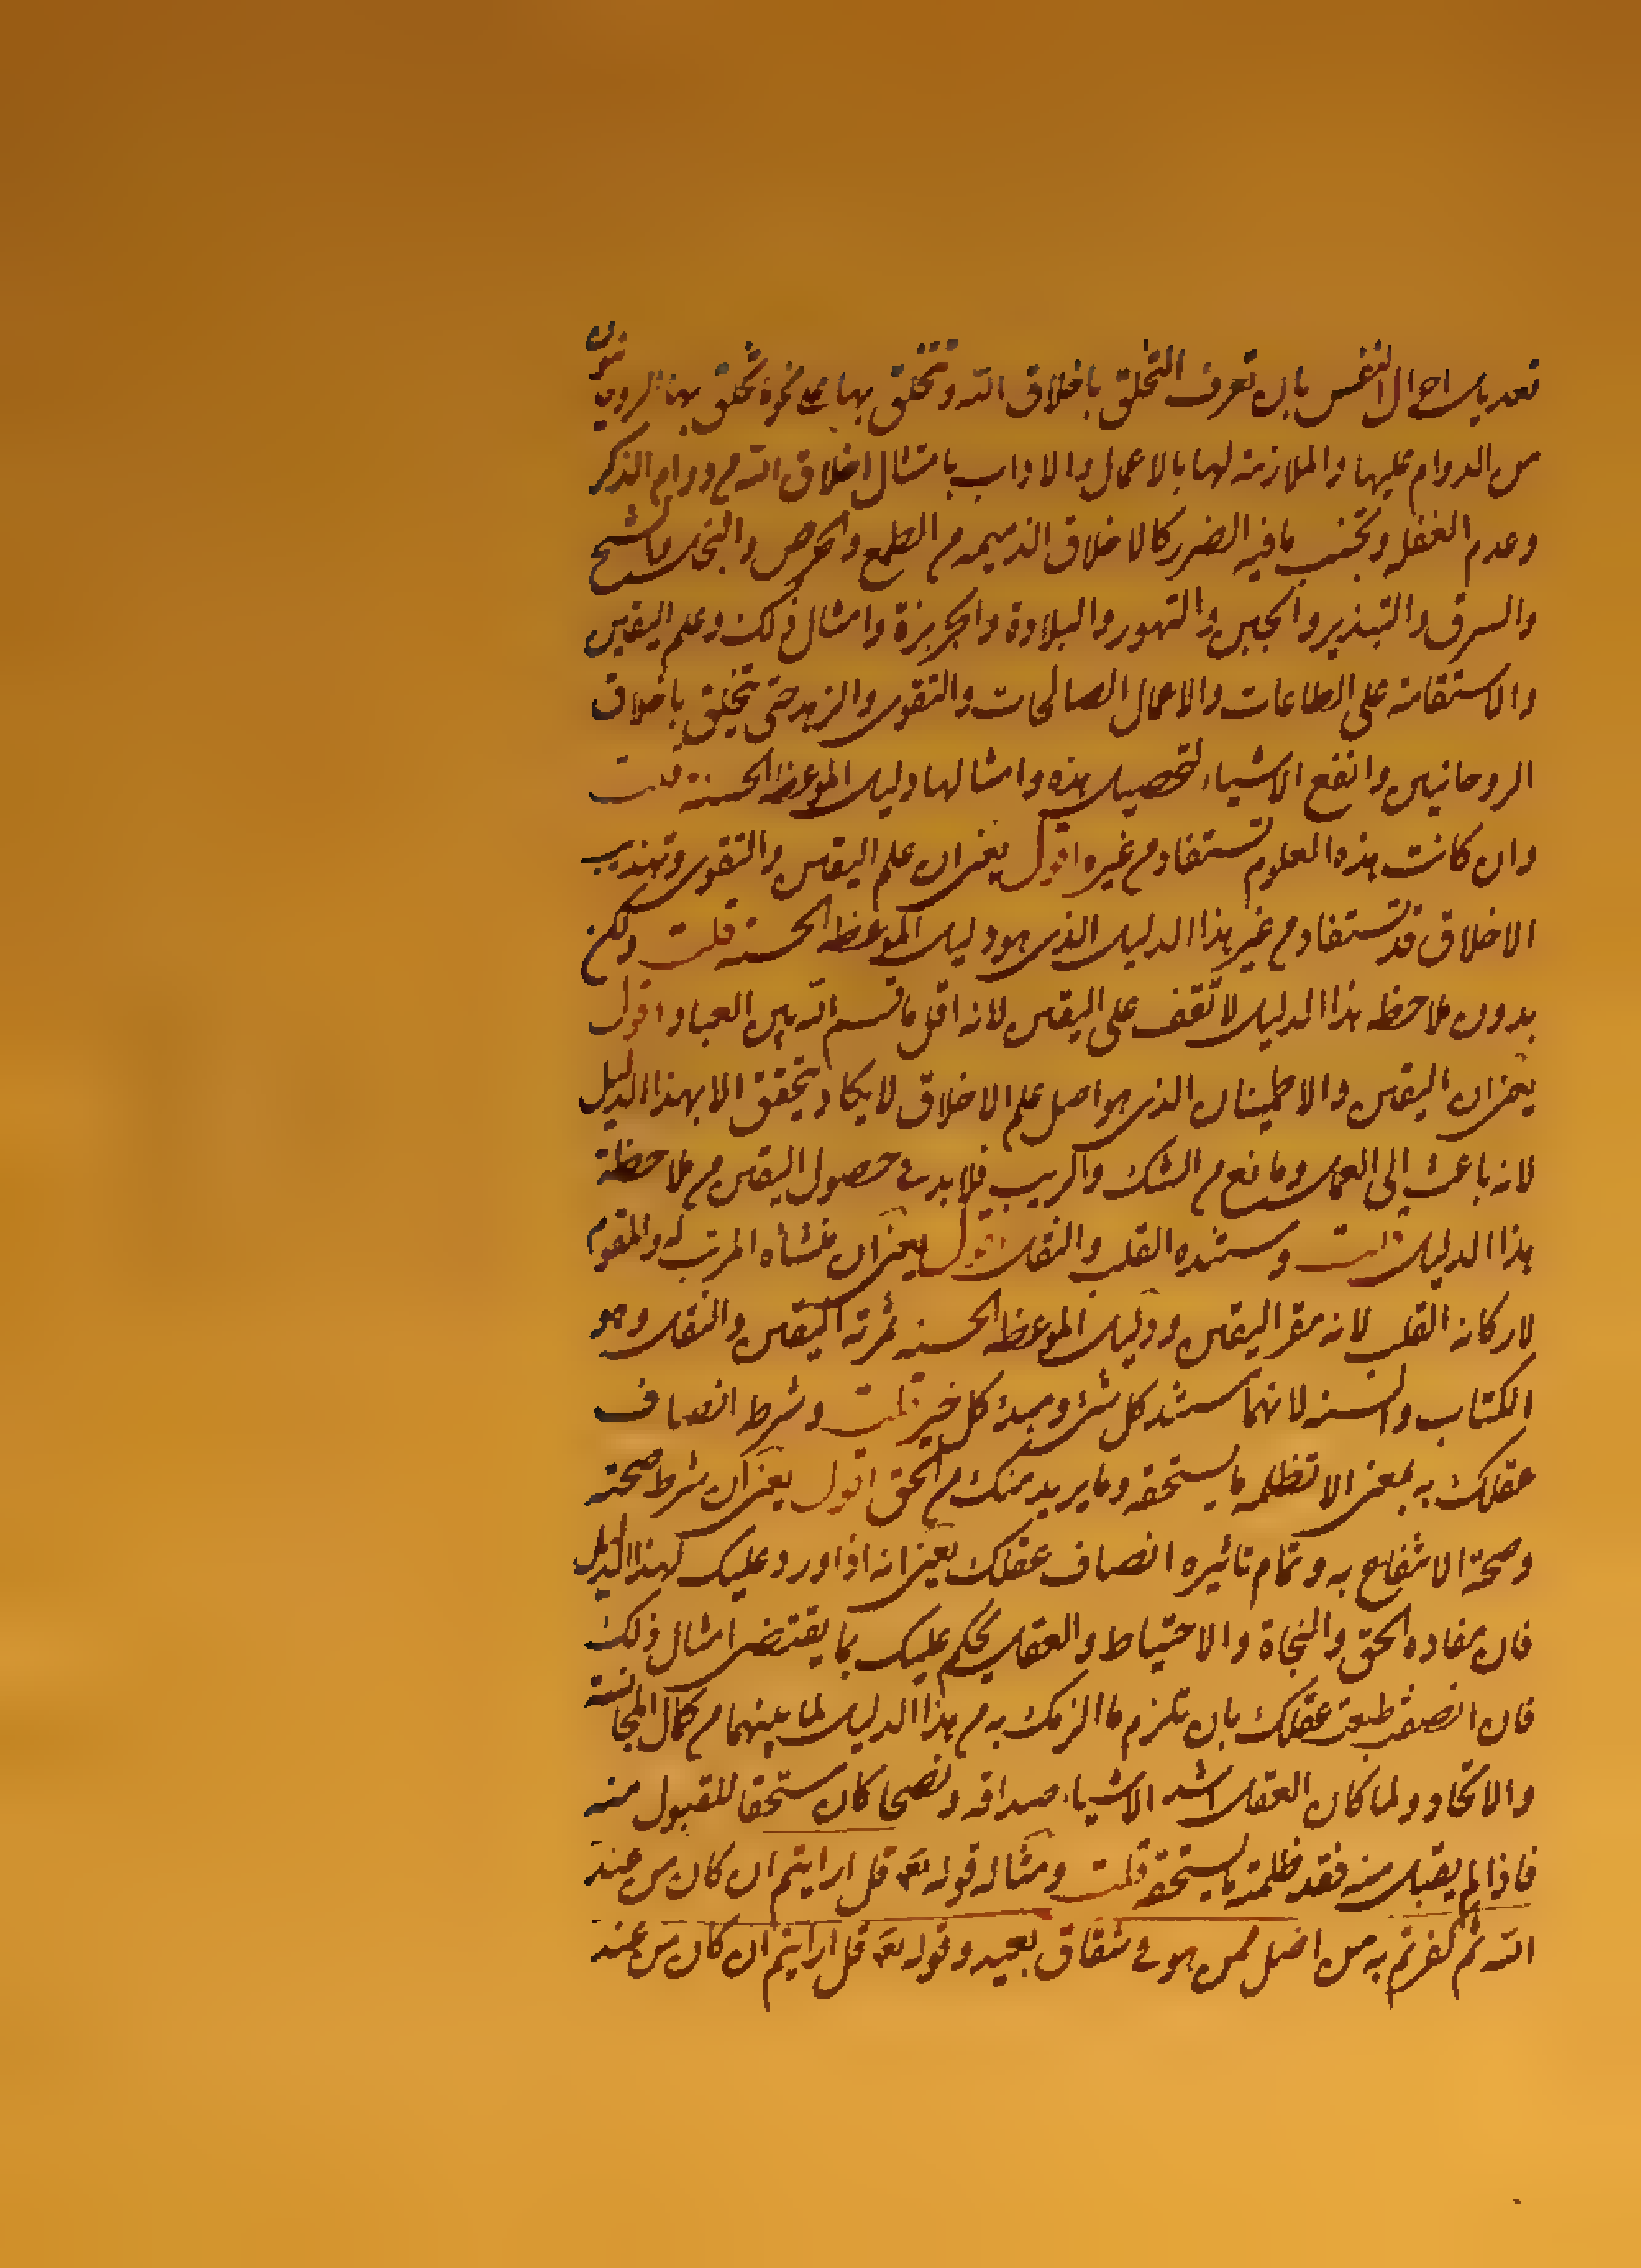 تعديل احوال النفس بان تعرف التخلق باخلاق الله وتتخلق بها على نحو ما تخلق بها الروحانيون
من الدوام عليها والملازمة لها بالاعمال والاداب بامتثال اخلاق الله من دوام الذكر
وعدم الغفله وتجنب ما فيه الضرر كالاخلاق الذميمه من الطمع والحرص والبخل والشح
والسرف والتبذير والجبن والتهور والبلادة والجربزة وامثال ذلك وعلم اليقين
والاستقامة على الطاعات والاعمال الصالحات والتقوى والزهد حتى يتخلق باخلاق
الروحانيين وانفع الاشياء لتحصيل هذه وامثالها دليل الموعظة الحسنة قلت
وان كانت هذه العلوم تستفاد من غيره اقول يعنى ان علم اليقين والتقوى وتهذيب
الاخلاق قد تستفاد من غير هذا الدليل الذى هو دليل الموعظه الحسنه قلت ولكن
بدون ملاحظه هذا الدليل لا تقف على اليقين لانه اقل ما قسم الله بين العباد اقول
يعنى ان اليقين والاطمينان الذى هو اصل علم الاخلاق لا يكاد يتحقق الا بهذا الدليل
لانه باعث الى العمل ومانع من الشك والريب فلا بد فى حصول اليقين من ملاحظة
هذا الدليل قلت ومستنده القلب والنقل اقول يعنى ان منشأه المرتب له والمقوم
لاركانه القلب لانه مقر اليقين ودليل الموعظه الحسنه ثمرته اليقين والنقل وهو
الكتاب والسنه لانهما مستند كل شئ ومبدء كل خير قلت وشرط انصاف
عقلك به بمعنى الا تظلمه ما يستحقه وما يريد منك من الحق اقول يعنى ان شرط صحته
وصحة الانتفاع به وتمام تاثيره انصاف عقلك يعنى انه اذا اورد عليك لهذا الدليل
فان مفاده الحق والنجاة والاحتياط والعقل يحكم عليك بما يقتضى امثال ذلك
فان انصفت طبعت عقلك بان تلزم ما الزمك به من هذا الدليل لما بينهما من كمال المجانسة
والاتحاد ولما كان العقل اشد الاشياء صداقه ونصحا كان مستحقا للقبول منه
فاذا لم يقبل منه فقد ظلمته ما يستحقه قلت ومثاله قوله تعه قل ارايتم ان كان من عند
الله ثم كفرتم به من اضل ممن هو فى شقاق بعيد وقوله تعه قل ارايتم ان كان من عند